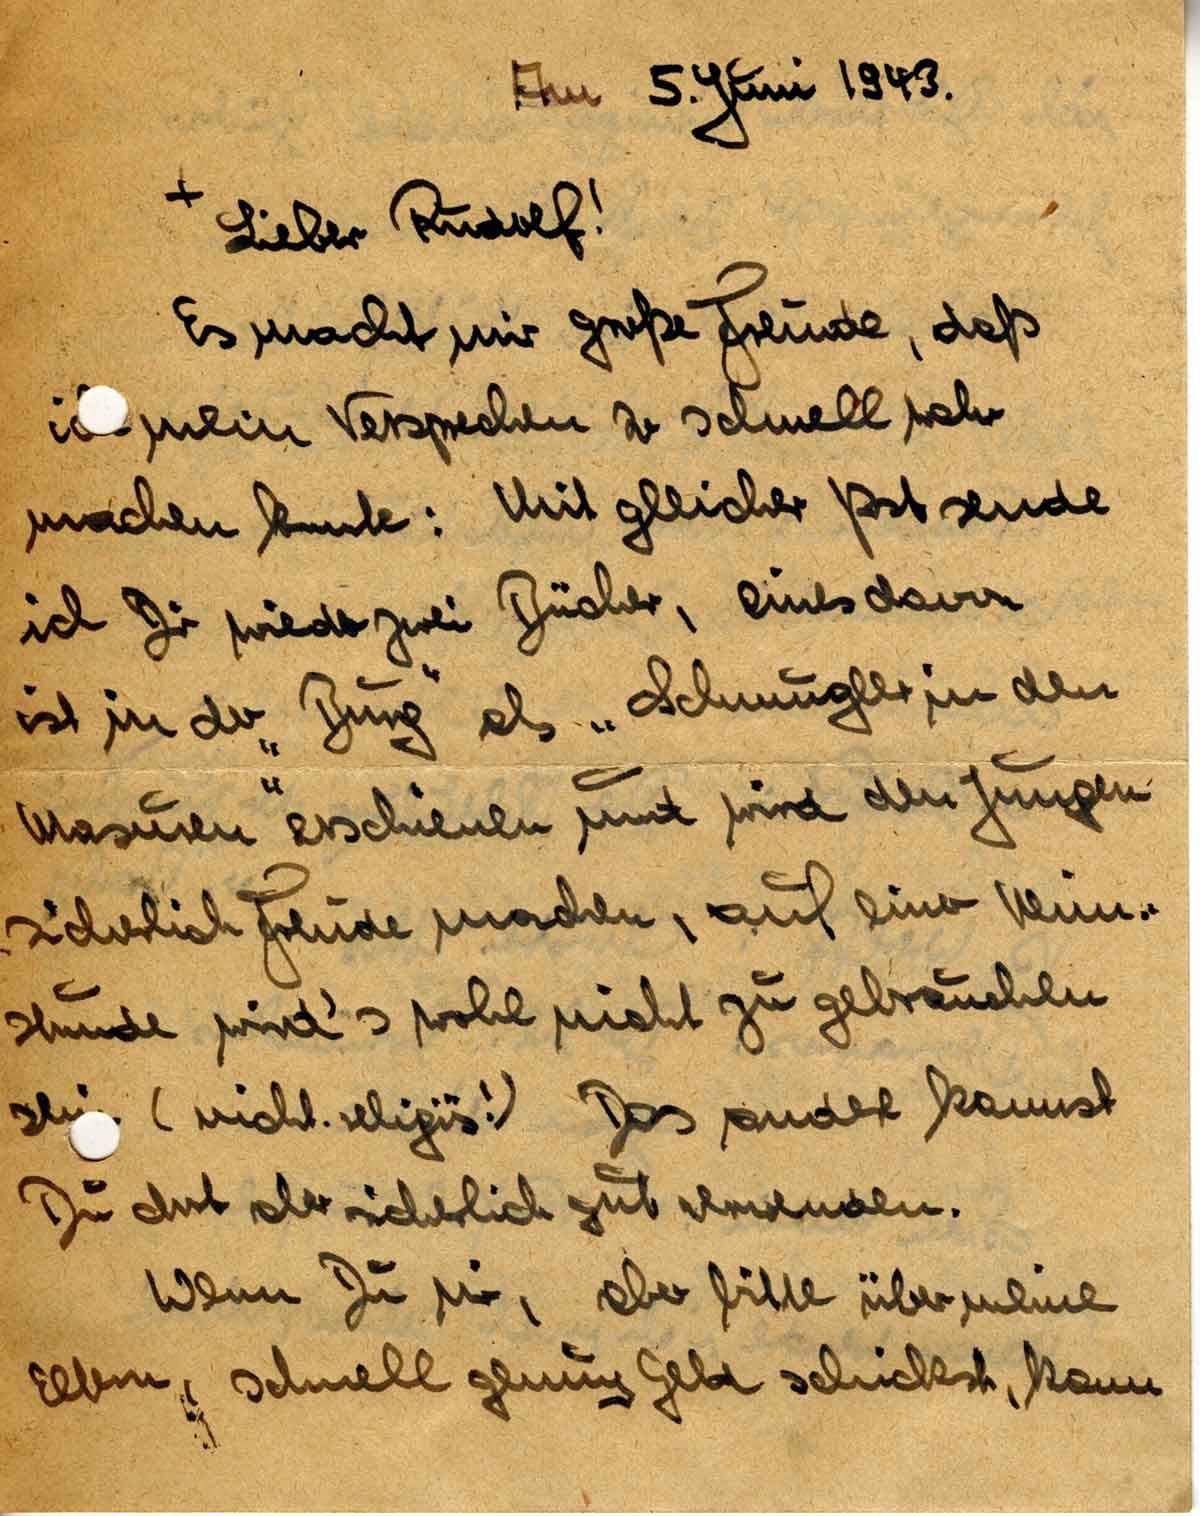 Am 5. Juni 1943.
+ Lieber Rudolf!
Es macht mir große Freude, daß
ich mein Versprechen so schnell wahr
machen konnte: Mit gleicher Post sende
ich Dir wieder zwei Bücher, eines davon
ist in der „Burg" als „Schmuggler in den
Masuren" erschienen und wird den Jungen
sicherlich Freude machen, auf einer Heim-
stunde wird's wohl nicht zu gebrauchen
sein. (nicht religiös!) Das andere kannst
Du dort aber sicherlich gut verwenden.
Wenn Du mir, aber bitte über meine
Eltern, schnell genug Geld schickst, kann